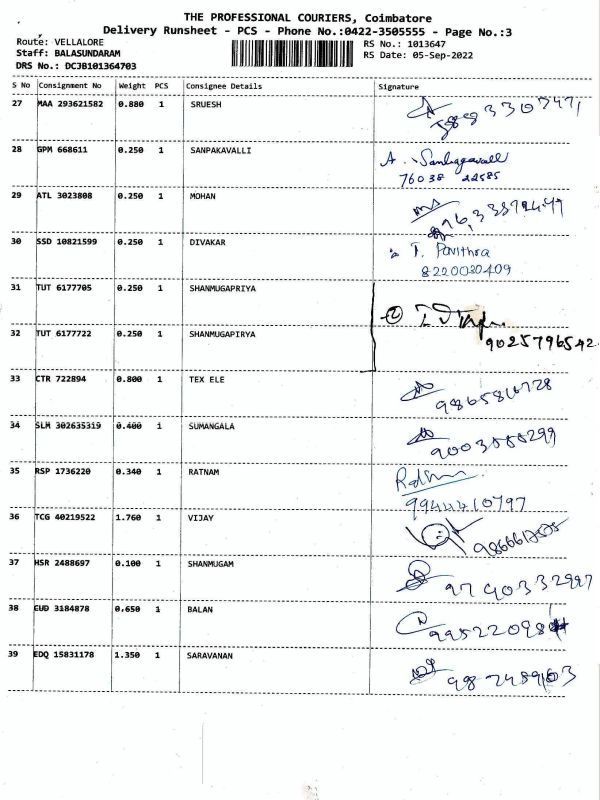 THE PROFESSIONAL COURIERS, Coimbatore
Delivery Runsheet - PCS - Phone No.:0422-3505555 - Page No.:3
Route: VELLALORE
Staff: BALASUNDARAM
DRS No.: DCJB101364703
RS No.: 1013647
RS Date: 05-Sep-2022
S No Consignment No Weight PCS Consignee Details Signature
27 MAA 293621582 0.880 1 SRUESH
28 GPM 668611 0.250 1 SANPAKAVALLI
76038 22585
29 ATL 3023808 0.250 1 MOHAN
30 SSD 10821599 0.250 1 DIVAKAR T. Pavithra
8220030409
31 TUT 6177705 0.250 1 SHANMUGAPRIYA
32 TUT 6177722 0.250 1 SHANMUGAPIRYA 9025796542
33 CTR 722894 0.800 1 TEX ELE
34 SLM 302635319 0.400 1 SUMANGALA
35 RSP 1736220 0.340 1 RATNAM
9944410797
36 TCG 40219522 1.760 1 VIJAY
37 HSR 2488697 0.100 1 SHANMUGAM 9790332997
38 EUD 3184878 0.650 1 BALAN
39 EDQ 15831178 1.350 1 SARAVANAN